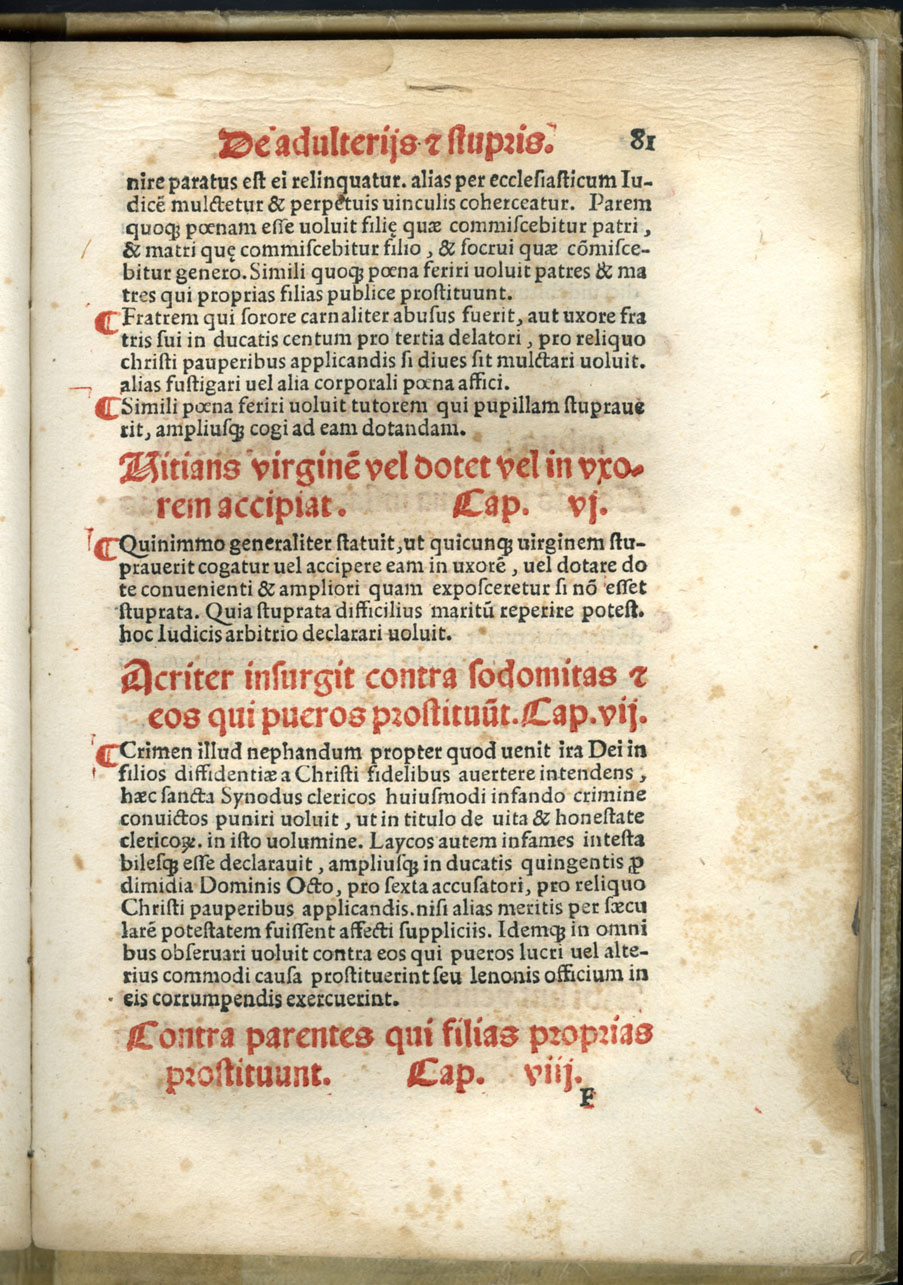 De adulterijs ⁊ stupris. 81
nire paratus est ei relinquatur. alias per ecclesiasticum Iu-
dicē mulctetur & perpetuis uinculis coherceatur. Parem
quoqꝫ pœnam esse uoluit filię quæ commiscebitur patri,
& matri quę commiscebitur filio, & socrui quæ cōmisce-
bitur genero. Simili quoqꝫ pœna feriri uoluit patres & ma
tres qui proprias filias publice prostituunt.
¶ Fratrem qui sorore carnaliter abusus fuerit, aut uxore fra
tris sui in ducatis centum pro tertia delatori, pro reliquo
christi pauperibus applicandis si diues sit mulctari uoluit.
alias fustigari uel alia corporali pœna affici.
¶ Simili pœna feriri uoluit tutorem qui pupillam stupraue
rit, ampliusqꝫ cogi ad eam dotandam.
Vitians virginē vel dotet vel in vxo-
rem accipiat. Cap. vj.
¶ Quinimmo generaliter statuit, ut quicunqꝫ uirginem stu-
prauerit cogatur uel accipere eam in uxorē, uel dotare do
te conuenienti & ampliori quam exposceretur si nō esset
stuprata. Quia stuprata difficilius maritū reperire potest.
hoc Iudicis arbitrio declarari uoluit.
Acriter insurgit contra sodomitas ⁊
eos qui pueros prostituūt. Cap. vij.
¶ Crimen illud nephandum propter quod uenit ira Dei in
filios diffidentiæ a Christi fidelibus auertere intendens,
hæc sancta Synodus clericos huiusmodi infando crimine
conuictos puniri uoluit, ut in titulo de uita & honestate
clericoꝝ. in isto uolumine. Laycos autem infames intesta
bilesqꝫ esse declarauit, ampliusqꝫ in ducatis quingentis ꝓ
dimidia Dominis Octo, pro sexta accusatori, pro reliquo
Christi pauperibus applicandis. nisi alias meritis per sæcu
larē potestatem fuissent affecti suppliciis. Idemqꝫ in omni
bus obseruari uoluit contra eos qui pueros lucri uel alte-
rius commodi causa prostituerint seu lenonis officium in
eis corrumpendis exercuerint.
Contra parentes qui filias proprias
prostituunt. Cap. viij.
F